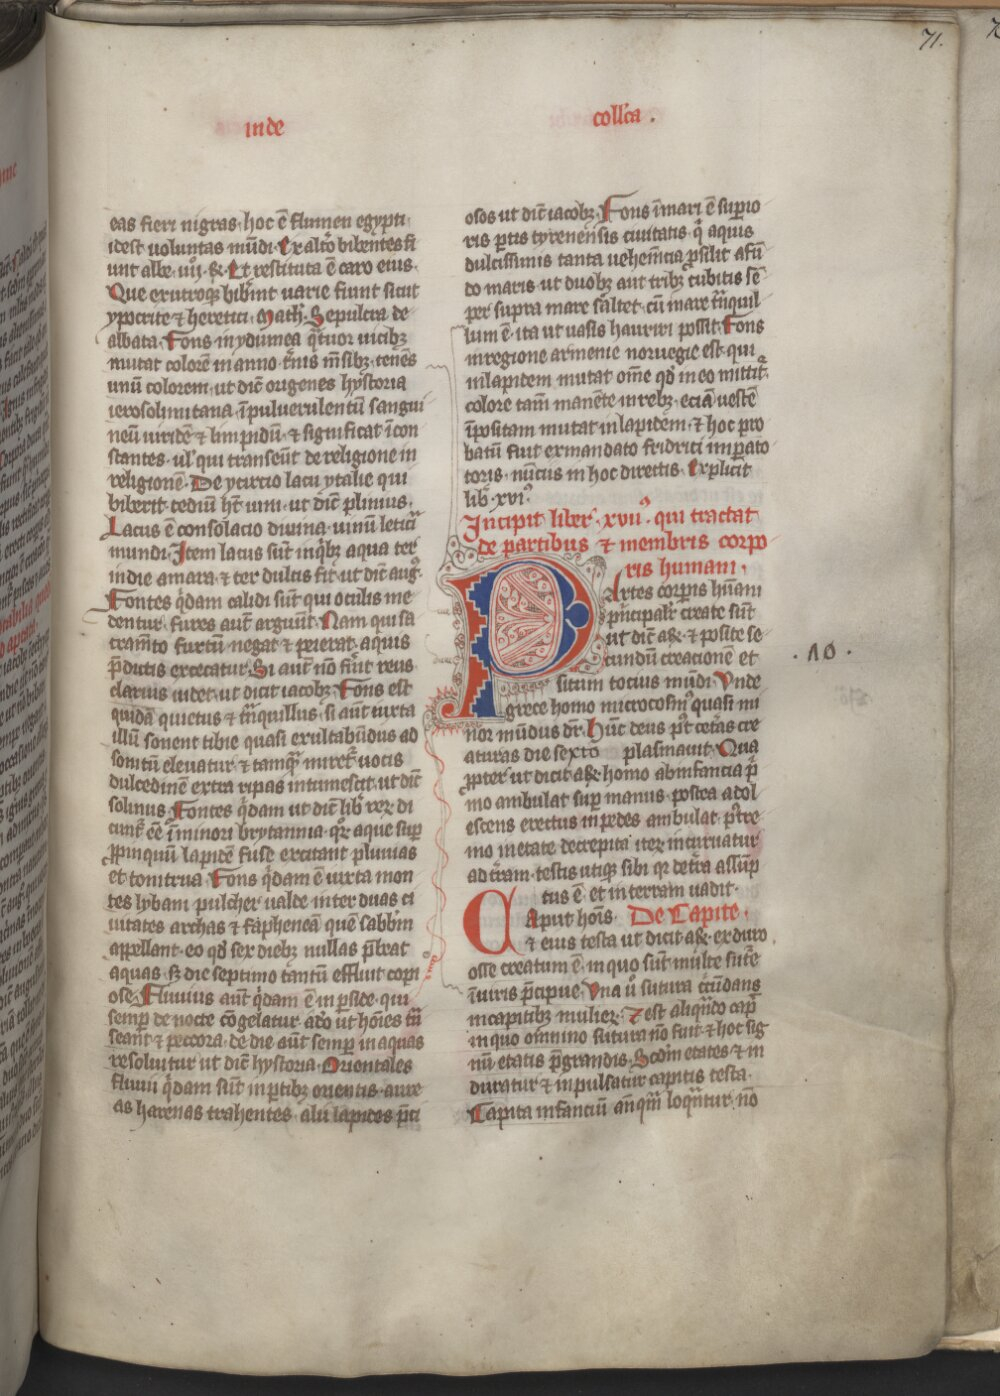 71.
inde
coll'ca .
eas fieri nigras · hoc ē flumen egypti
idest voluntas mūdi · Ex alt'o bibentes fi
unt albe · Et restituta ē caro eius ·
Que ex utroq; bib'int uarie fiunt sicut
ypocrite ⁊ heretici · Math'. Sepulcra de
albata · Fons in ydumea q̄tuor uicib;
mutat colorē in anno t'nis m̄sib; tenēs
unū colorem · ut dic̄ origenes hystoria
ierosolimitana · ī puluerulentū sangui
neū uiridē ⁊ limpidū · ⁊ significat ī con
stantes · ul' qui transeūt de religione in
religionē · De ycircio lacu ytalie qui
biberit tediū ht̄ uini · ut dic̄ plinius ·
Lacus ē consolacio diuina · uinū leticia
mundi · Item lacus sūt in q̄b; aqua ter
in die amara · ⁊ ter dulcis fit · ut dic̄ aug'.
Fontes q̄dam calidi sūt qui oculis me
dentur · fures aut̄ arguūt · Nam qui sa
cram̄to furtū negat ⁊ peierat · aquis
p̄dictis excecatur · Si aut̄ nō fu'it reus
clarius uidet · ut dicit iacob; Fons est
quidā quietus ⁊ t̄nquillus · si aūt iuxta
illū sonent tibie quasi exultabūdus ad
sonitū eleuatur · ⁊ tamq̄ miret' uocis
dulcedinē extra ripas intumescit · ut dic̄
solinus · Fontes q̄dam ut dic̄ lib' rer; di
cunt' ēē ī minori brytannia · q̄r aque sup
ꝓpinquū lapidē fuse excitant pluuias
et tonitrua · Fons q̄dam ē iuxta mon
tes lybani pulcher ualde inter duas ci
uitates archas ⁊ fapheneā quē sabb'm
appellant · eo qd' sex dieb; nullas p̄brat
aquas · s; die septimo tantū effluit copi
ose · Fluuius aut̄ q̄dam ē in p̄side · qui
semp̄ de nocte cōgelatur adeo ut hoīes t̄n
seant ⁊ peccora · de die aūt semp̄ in aquas
resoluitur ut dic̄ hystoria · Orientales
fluuii q̄dam sūt in ptib; orientis · aure
as harenas trahentes · alii lapides p̄ci
osos ut dic̄ iacob; Fons ī mari ē sup̄io
ris ptis tyrenensis ciuitatis · q̄ aquis
dulcissimis tanta uehem̄cia ꝓsilit a fū
do maris · ut duob; aut trib; cubitis sē
per supra mare saltet · cū mare t̄nquil
lum ē · ita ut uasis hauriri possit · Fons
in regione armenie noruegie est · qui
in lapidem mutat om̄e qd' in eo mittit'.
colore tam̄ manēte in reb; · eciā uestē
īpositam mutat in lapidem · ⁊ hoc pro
batū fuit ex mandato fridrici imp̄ato
toris · nūcus in hoc directis · Explicit
lib' · xvi°.
Incipit liber · xvii° · qui tractat
de partibus ⁊ membris corpo
ris humani ·
Partes corpis hūani
p̄ncipalr' create sūt
ut dic̄ a&. ⁊ posite se
cundū creacionē et
situm tocius mūdi · Vnde
grece homo microcosm' quasi mi
nor mūdus dr̄. Hūc deus p't cet'as cre
aturas die sexto plasmauit · Qua
ꝓpter ut dicit a& homo ab infancia p̄
mo ambulat sup manus · postea adol
escens erectus in pedes ambulat · p't'e
mo in etate decrepita iter; incuruatur
ad t'ram · testis utiq; sibi q̄r de t'ra assūp
tus ē · et in terram uadit ·
De Capite ·
Caput hois
⁊ eius testa ut dicit a& · ex duro
osse creatum ē · in quo sūt multe sut'e
ī uiris p̄cipue · Vna ū sutura c'cūdans
in capitib; mulier; · ⁊ est aliqn̄do cap̄
in quo omnino sutura nō fuit · ⁊ hoc sig
nū etatis p̄grandis · Scdm etates ⁊ in
duratur ⁊ in pulsatur capitis testa ·
Capita infanciū an̄q̄m loq̄ntur · nō
· 10 ·